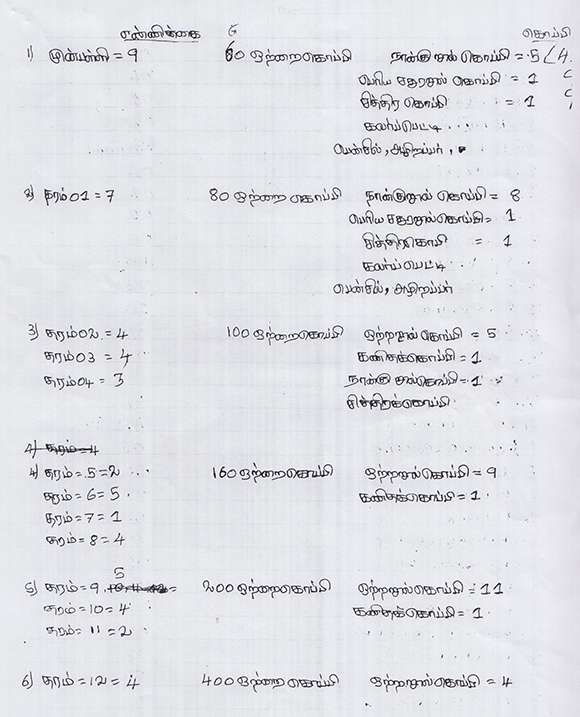 எண்ணிக்கை கொப்பி
1) முன்பள்ளி = 9 60 ஒற்றை கொப்பி நான்கு றூல் கொப்பி = 5 4
பெரிய சதுரறூல் கொப்பி = 1
சித்திர கொப்பி = 1
கலர்ப் பெட்டி
பென்சில், அழிறப்பர்,
2) தரம் 01 = 7 80 ஒற்றை கொப்பி நான்கு றூல் கொப்பி = 8
பெரிய சதுரறூல் கொப்பி = 1
சித்திர கொப்பி = 1
கலர்ப் பெட்டி
பென்சில், அழிறப்பர்
3) தரம் 02 = 4 100 ஒற்றை கொப்பி ஒற்றறூல் கொப்பி = 5
தரம் 03 = 4 கணிதக்கொப்பி = 1
தரம் 04 = 3 நான்கு றூல் கொப்பி = 1
சித்திரக்கொப்பி
4) தரம் = 4
4) தரம் = 5 = 2 160 ஒற்றை கொப்பி ஒற்றறூல் கொப்பி = 9
தரம் = 6 = 5 கணிதக்கொப்பி = 1
தரம் = 7 = 1
தரம் = 8 = 4
5
5) தரம் = 9 = 200 ஒற்றை கொப்பி ஒற்றறூல் கொப்பி = 11
தரம் = 10 = 4 கணிதக்கொப்பி = 1
தரம் = 11 = 2
6) தரம் = 12 = 4 400 ஒற்றை கொப்பி ஒற்றறூல் கொப்பி = 4